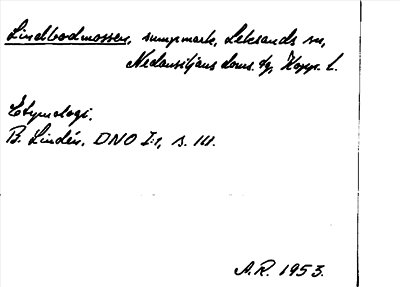 Lindbodmossen, sumpmark, Leksands sn,
Nedansiljans doms. tg, Kopp. l.
Etymologi.
B. Lindén, DNO I:1, s. 111.
A.R. 1953.